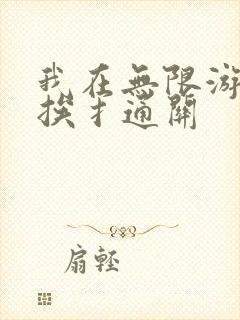 我在無限游
挨才通關
扇輕